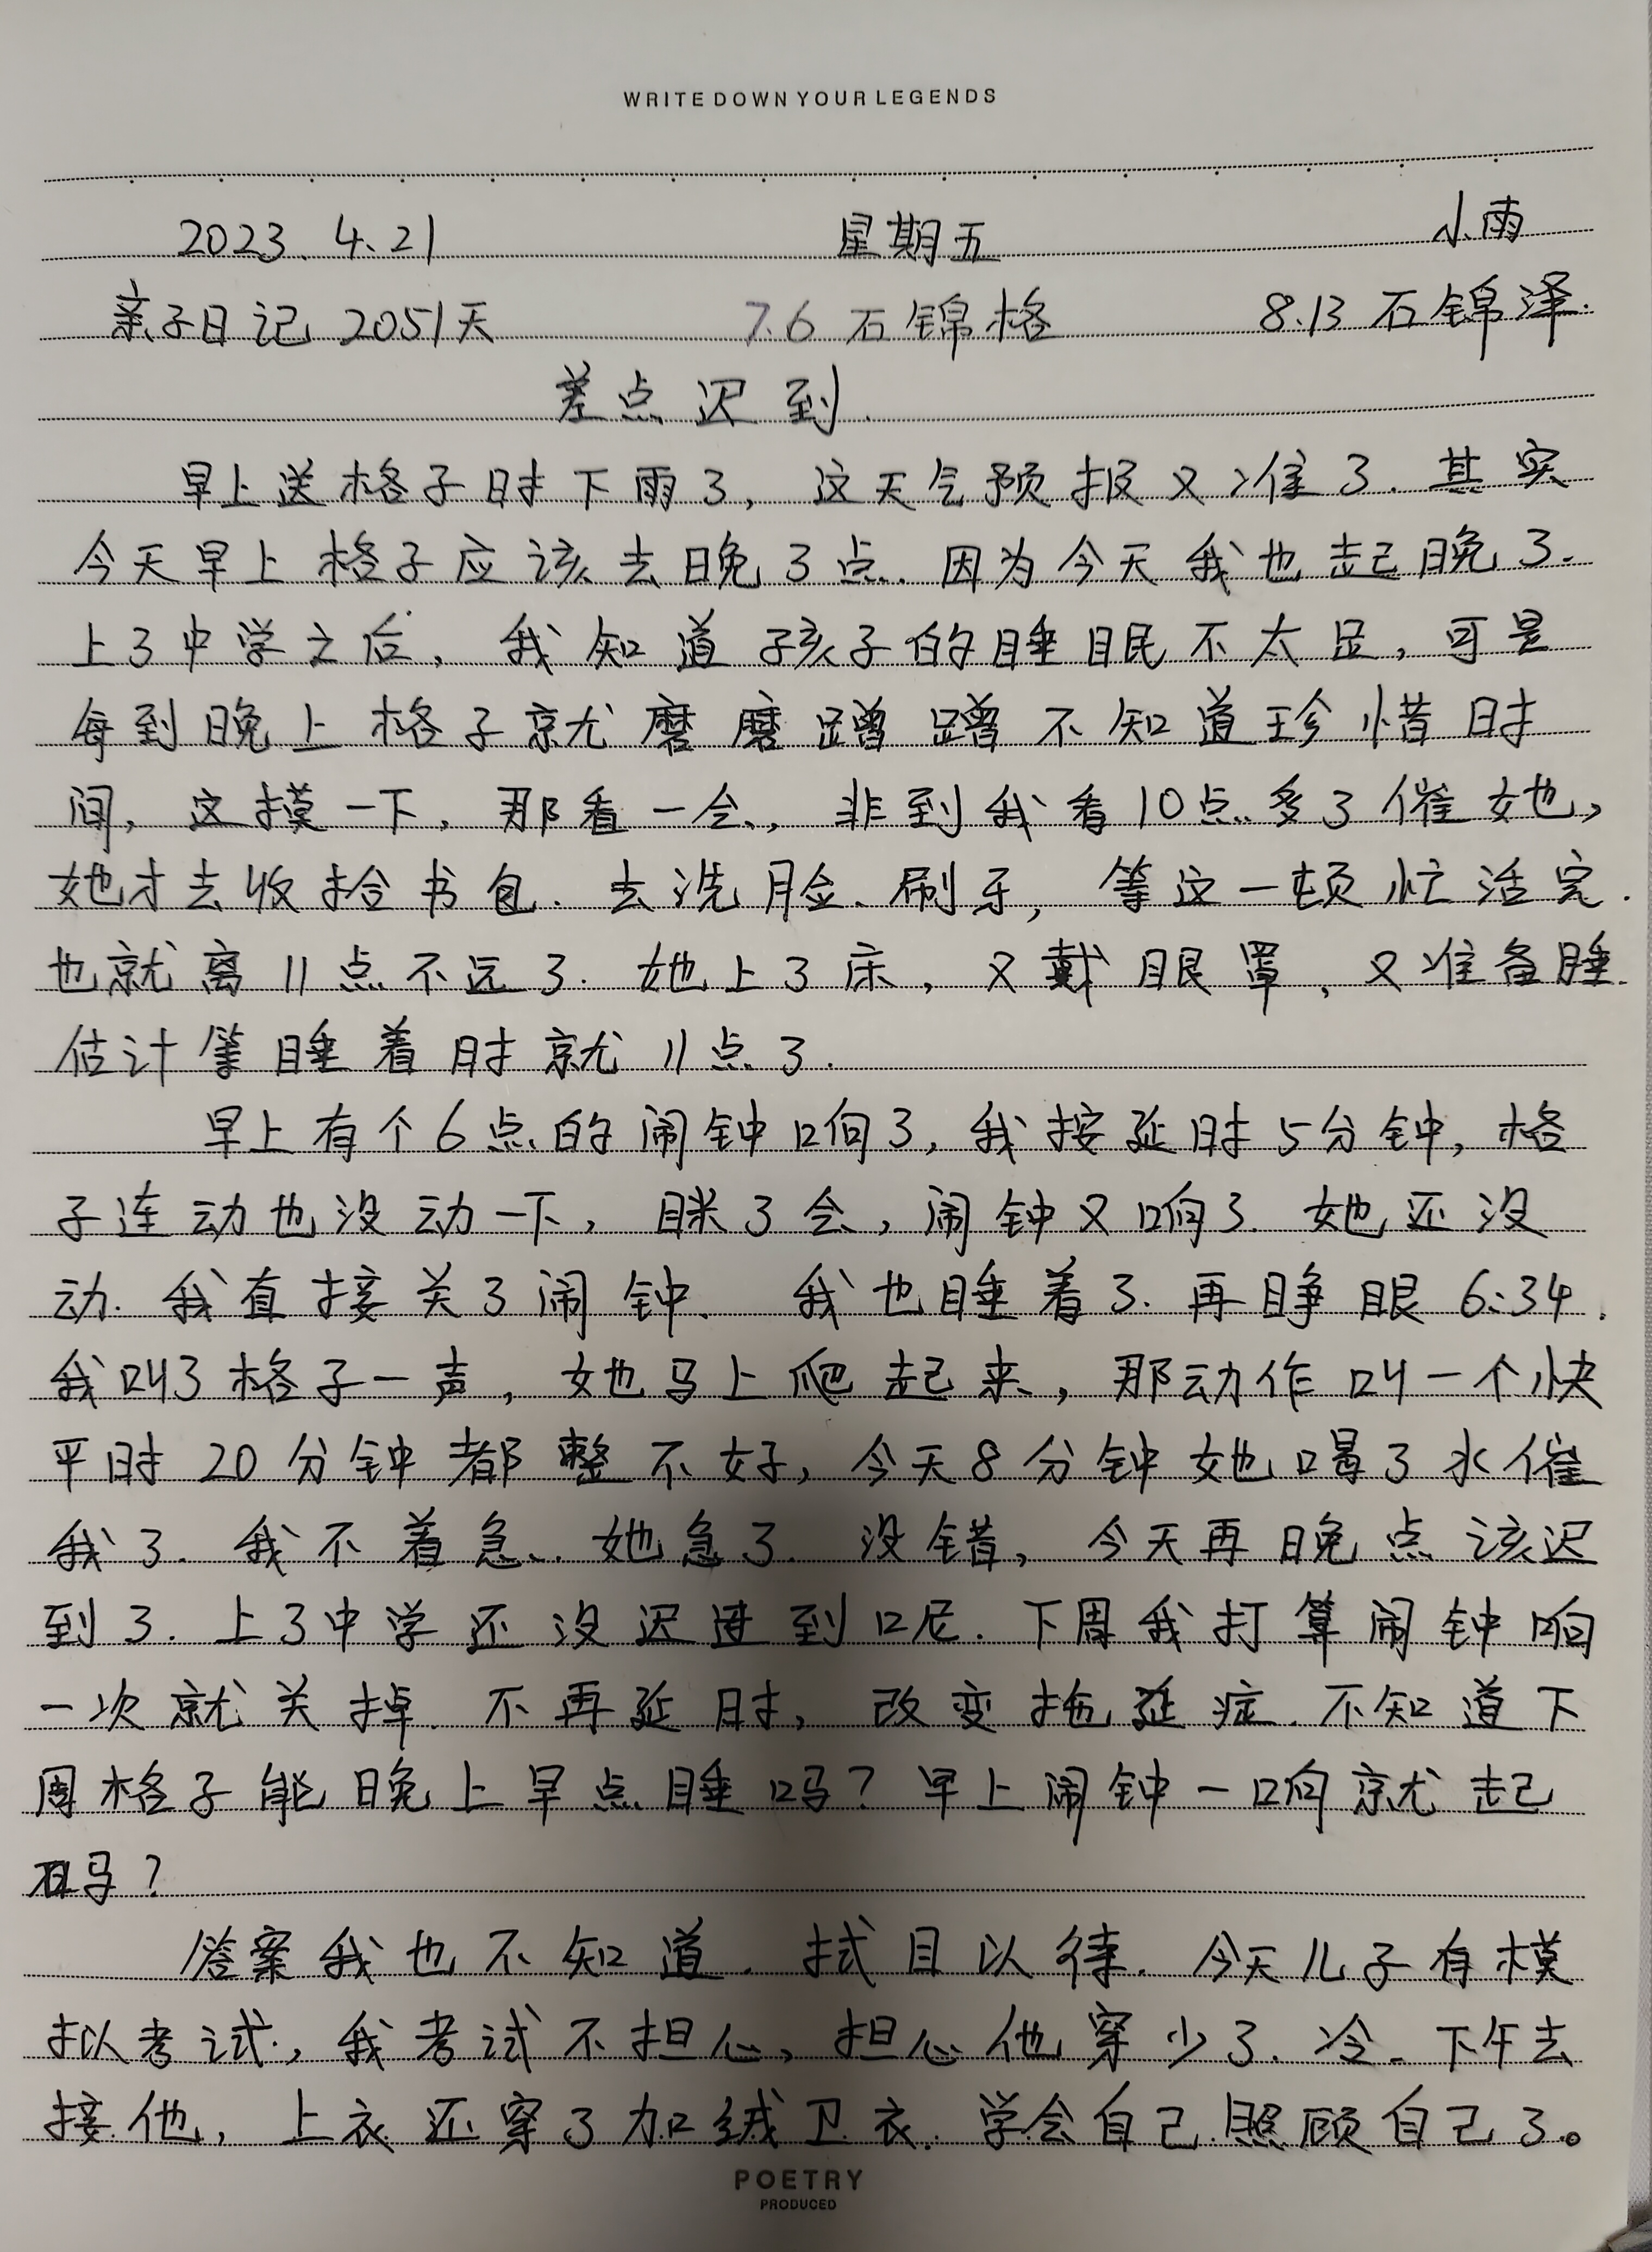 WRITE DOWN YOUR LEGENDS
2023. 4.21 星期五 小雨
亲子日记 2051天 7.6 石锦格 8.13 石锦泽.
差点迟到.
早上送格子时下雨了, 这天气预报又准了. 其实
今天早上格子应该去晚了点. 因为今天我也起晚了.
上了中学之后, 我知道孩子的睡眠不太足, 可是
每到晚上格子就磨磨蹭蹭不知道珍惜时
间, 这摸一下, 那看一会, 非到我看10点多了催她,
她才去收拾书包. 去洗脸、刷牙, 等这一顿忙活完.
也就离11点不远了. 她上了床, 又戴眼罩, 又准备睡.
估计等睡着时就11点了.
早上有个6点的闹钟响了, 我按延时5分钟, 格
子连动也没动一下, 眯了会, 闹钟又响了. 她还没
动. 我直接关了闹钟. 我也睡着了. 再睁眼 6:34.
我叫了格子一声, 她马上爬起来, 那动作叫一个快
平时20分钟都整不好, 今天8分钟她喝了水催
我了. 我不着急. 她急了. 没错, 今天再晚点该迟
到了. 上了中学还没迟进到呢. 下周我打算闹钟响
一次就关掉. 不再延时, 改变拖延症. 不知道下
周格子能晚上早点睡吗? 早上闹钟一响就起
吗?
答案我也不知道. 拭目以待. 今天儿子有模
拟考试, 我考试不担心, 担心他穿少了. 冷. 下午去
接他, 上衣还穿了加绒卫衣. 学会自己照顾自己了。
POETRY
PRODUCED